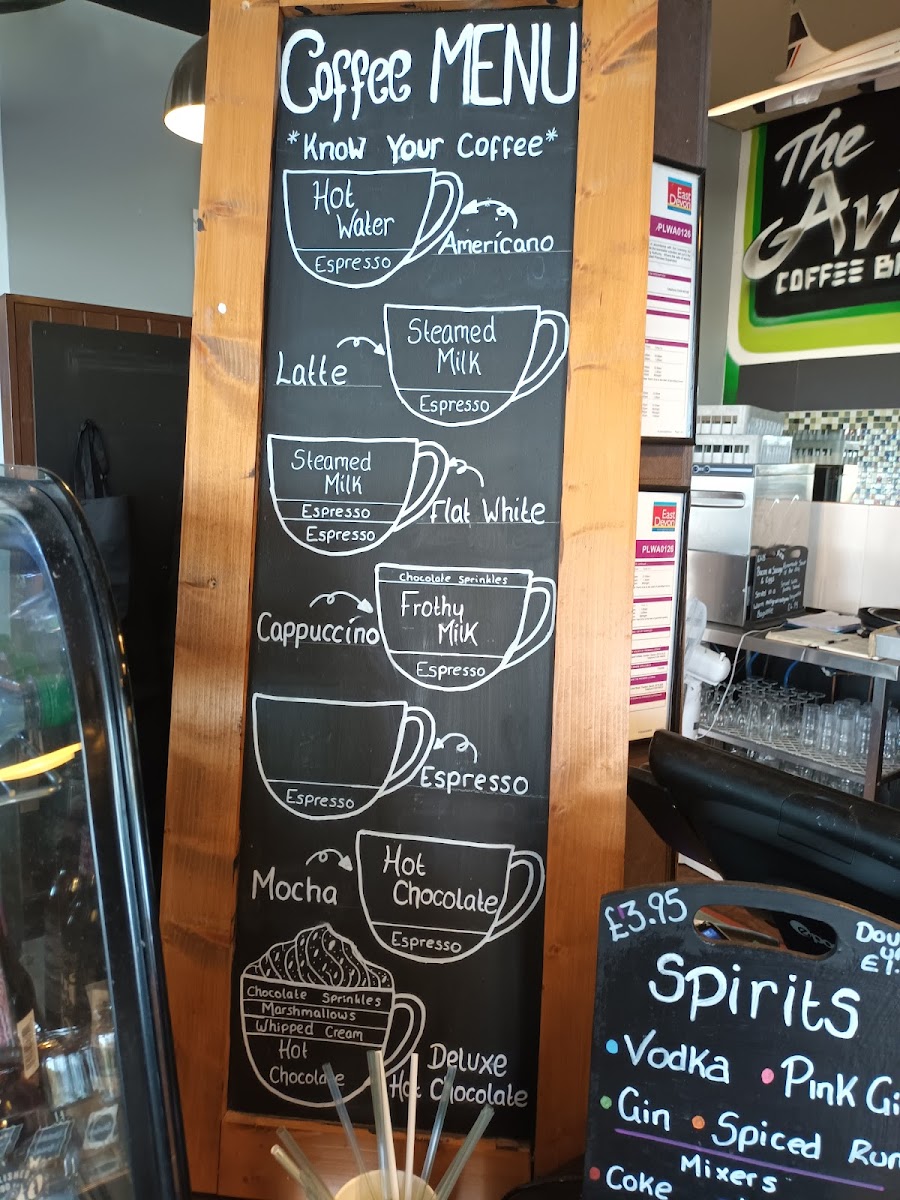 Coffee MENU
*Know Your Coffee*
Hot
Water
Espresso
Americano
Steamed
Milk
Espresso
Latte
Steamed
Milk
Espresso
Espresso
Flat White
Chocolate Sprinkles
Frothy
Milk
Espresso
Cappuccino
Espresso
Espresso
Hot
Chocolate
Espresso
Mocha
Chocolate Sprinkles
Marshmallows
Whipped Cream
Hot
Chocolate
Deluxe
Hot Chocolate
East
Devon
PLWA0126
East
Devon
PLWA0126
The
Av
COFFEE BA
£3.95
Dou
£1.
Spirits
Vodka
Pink Gi
Gin
Spiced Rum
Mixers
Coke